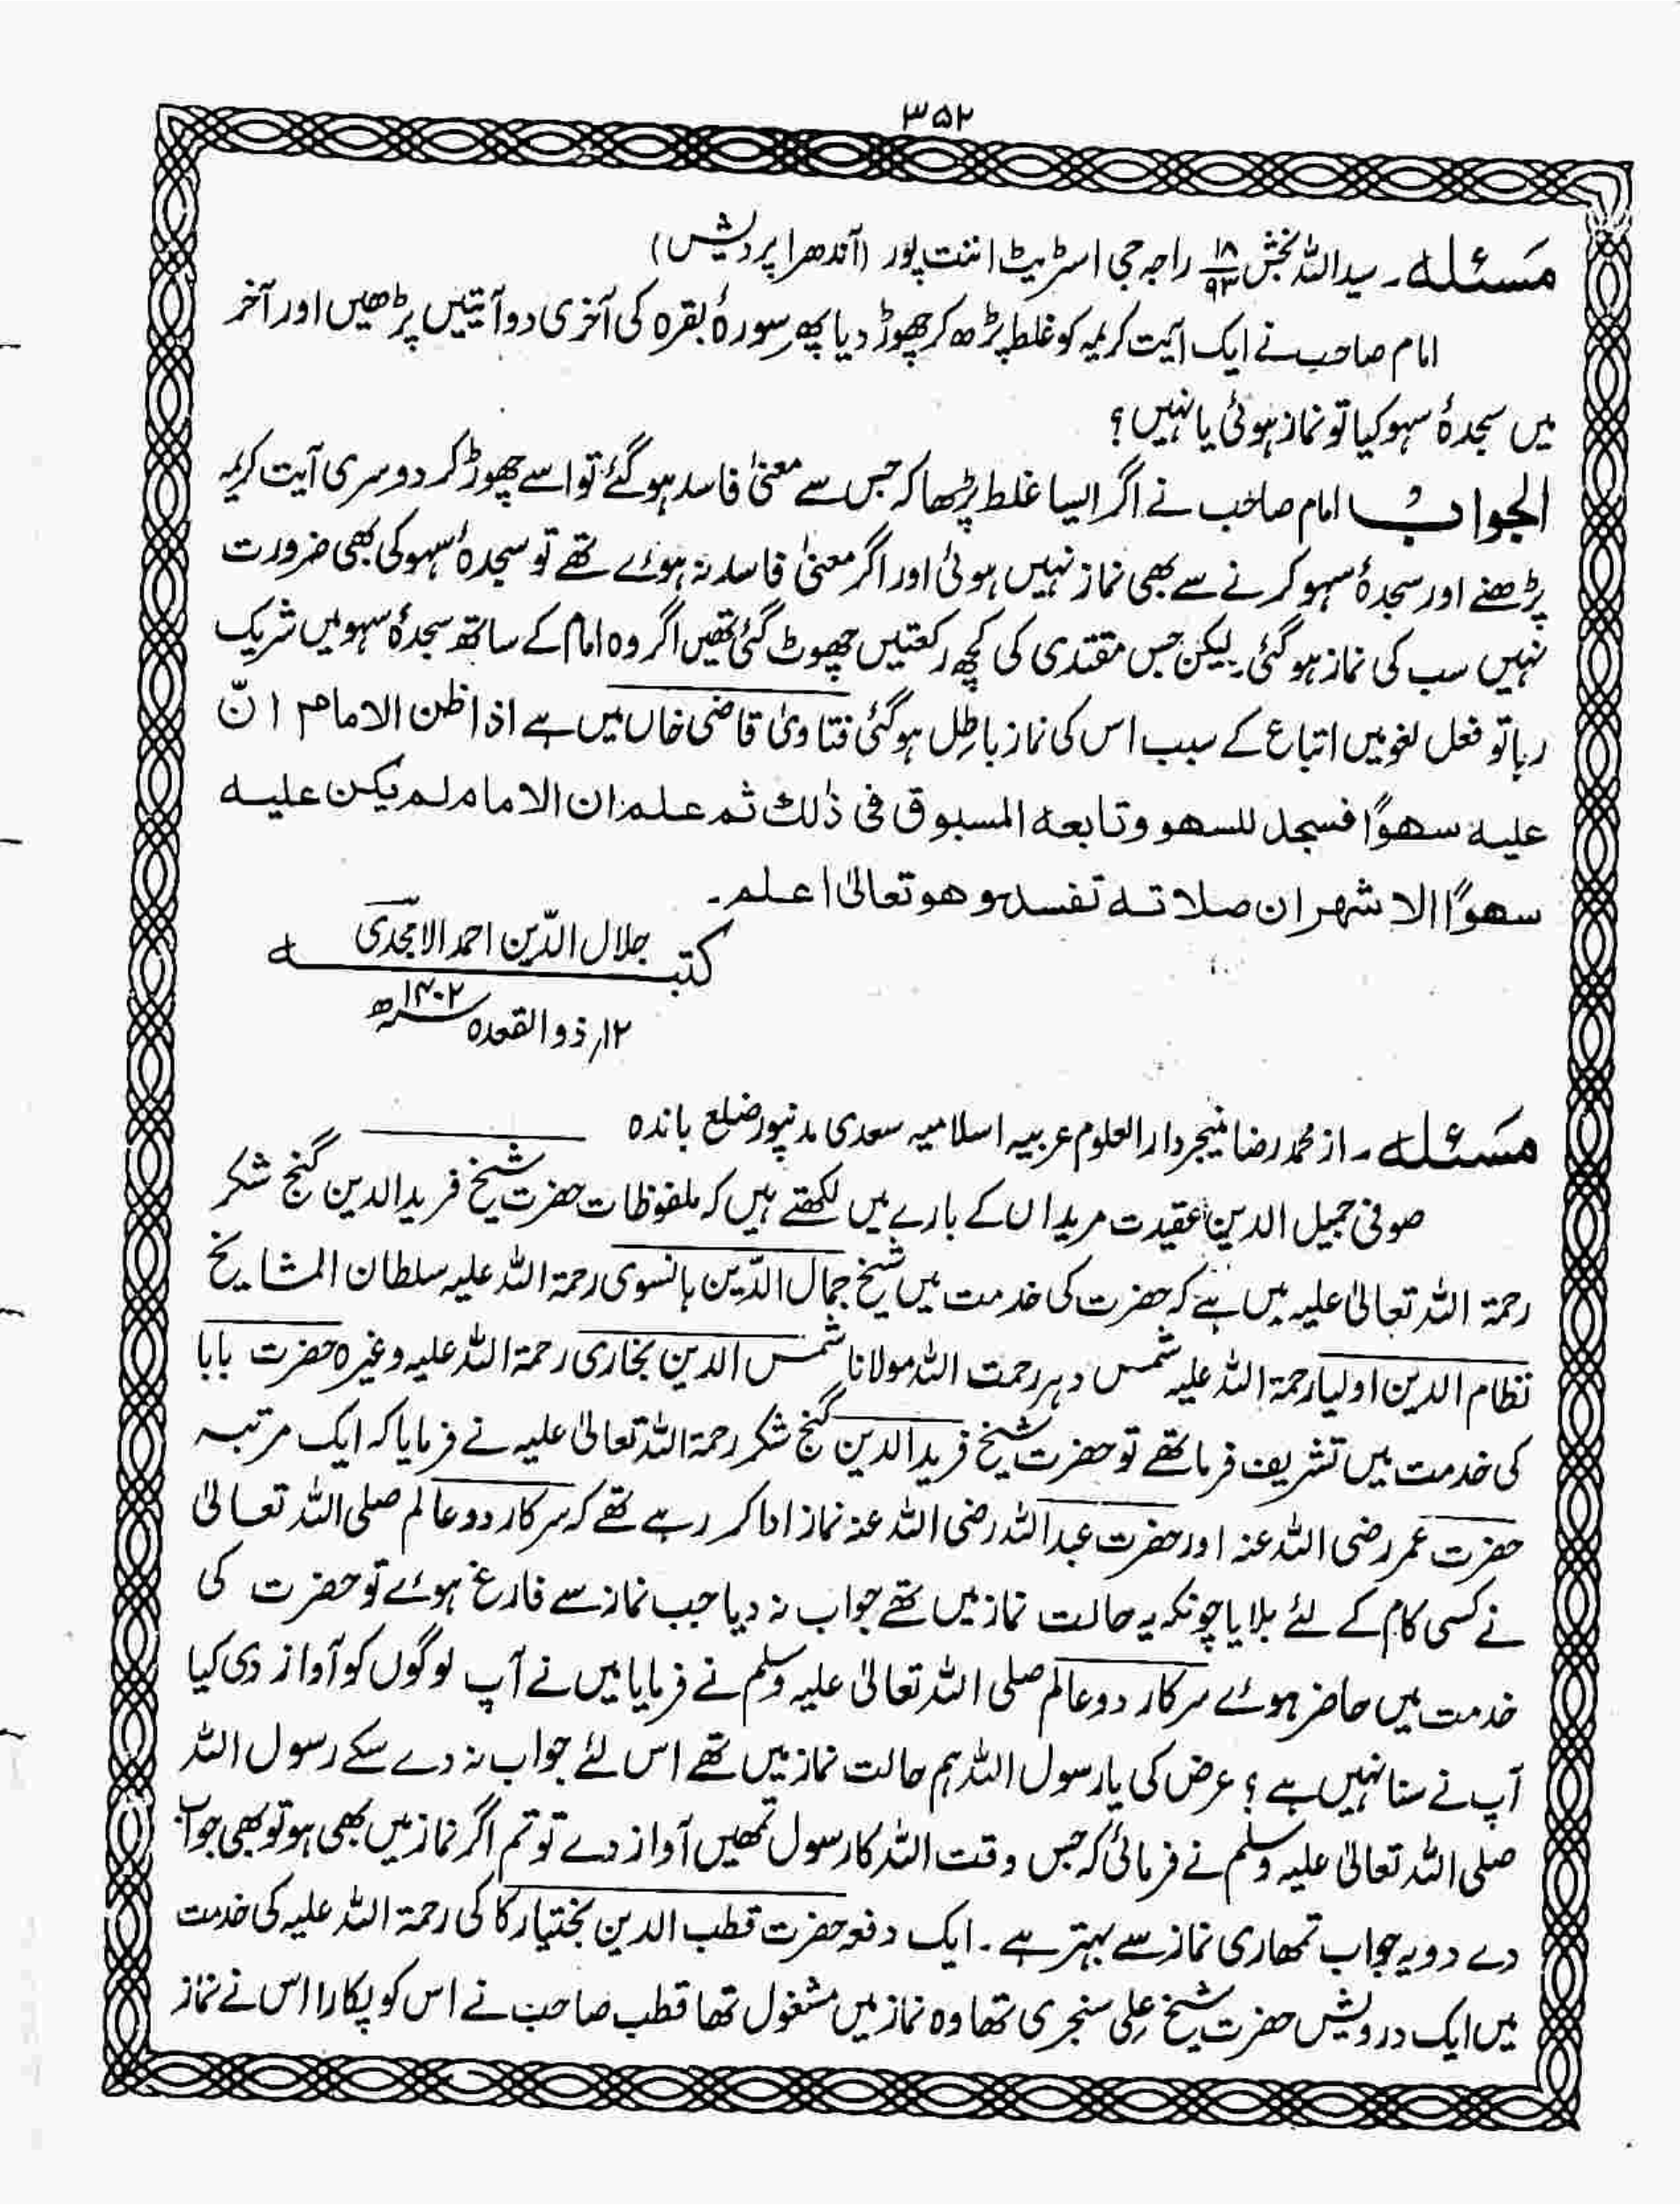 ۳۵۲
مَسئلہ۔ سید اللہ بخش ۱۸/۹۳ راجہ جی اسٹریٹ اننت پور (آندھرا پردیش)
امام صاحب نے ایک آیت کریمہ کو غلط پڑھ کر چھوڑ دیا پھر سورۂ بقرہ کی آخری دو آیتیں پڑھیں اور آخر
میں سجدۂ سہو کیا تو نماز ہوئی یا نہیں؟
الجوابــــ امام صاحب نے اگر ایسا غلط پڑھا کہ جس سے معنیٰ فاسد ہو گئے تو اسے چھوڑ کر دوسری آیت کریمہ
پڑھنے اور سجدۂ سہو کرنے سے بھی نماز نہیں ہوئی اور اگر معنیٰ فاسد نہ ہوئے تھے تو سجدۂ سہو کی بھی ضرورت
نہیں سب کی نماز ہو گئی۔ لیکن جس مقتدی کی کچھ رکعتیں چھوٹ گئی تھیں اگر وہ امام کے ساتھ سجدۂ سہو میں شریک
رہا تو فعل لغو میں اتباع کے سبب اس کی نماز باطل ہو گئی فتاویٰ قاضی خاں میں ہے اذا ظن الامام انّ
علیہ سھوًا فسجد للسھو وتابعہ المسبوق فی ذٰلک ثم علم ان الامام لم یکن علیہ
سھوًا الاشھر ان صلاتہ تفسد وھو تعالیٰ اعلم۔
کتبـــہ جلال الدّین احمد الامجدی
۱۲؍ ذوالقعدہ ۱۴۰۲ھ
مَسئلہ۔ از محمد رضا منیجر دارالعلوم عربیہ اسلامیہ سعدی مدنپور ضلع باندہ
صوفی جمیل الدین عقیدت مریداں کے بارے میں لکھتے ہیں کہ ملفوظات حضرت شیخ فریدالدین گنج شکر
رحمۃ اللہ تعالیٰ علیہ میں ہے کہ حضرت کی خدمت میں شیخ جمال الدّین ہانسوی رحمۃ اللہ علیہ سلطان المشایخ
نظام الدین اولیا رحمۃ اللہ علیہ شمس دہر رحمت اللہ مولانا شمس الدین بخاری رحمۃ اللہ علیہ وغیرہ حضرت بابا
کی خدمت میں تشریف فرما تھے تو حضرت شیخ فریدالدین گنج شکر رحمۃ اللہ تعالیٰ علیہ نے فرمایا کہ ایک مرتبہ
حضرت عمر رضی اللہ عنہ اور حضرت عبداللہ رضی اللہ عنہ نماز ادا کر رہے تھے کہ سرکار دوعالم صلی اللہ تعالیٰ
نے کسی کام کے لئے بلایا چونکہ یہ حالت نماز میں تھے جواب نہ دیا جب نماز سے فارغ ہوئے تو حضرت کی
خدمت میں حاضر ہوئے سرکار دوعالم صلی اللہ تعالیٰ علیہ وسلم نے فرمایا میں نے آپ لوگوں کو آواز دی کیا
آپ نے سنا نہیں ہے؟ عرض کی یارسول اللہ ہم حالت نماز میں تھے اس لئے جواب نہ دے سکے رسول اللہ
صلی اللہ تعالیٰ علیہ وسلم نے فرمائی کہ جس وقت اللہ کا رسول تمھیں آواز دے تو تم اگر نماز میں بھی ہو تو بھی جواب
دے دو یہ جواب تمھاری نماز سے بہتر ہے۔ ایک دفعہ حضرت قطب الدین بختیار کاکی رحمۃ اللہ علیہ کی خدمت
میں ایک درویش حضرت شیخ علی سنجری تھا وہ نماز میں مشغول تھا قطب صاحب نے اس کو پکارا اس نے نماز